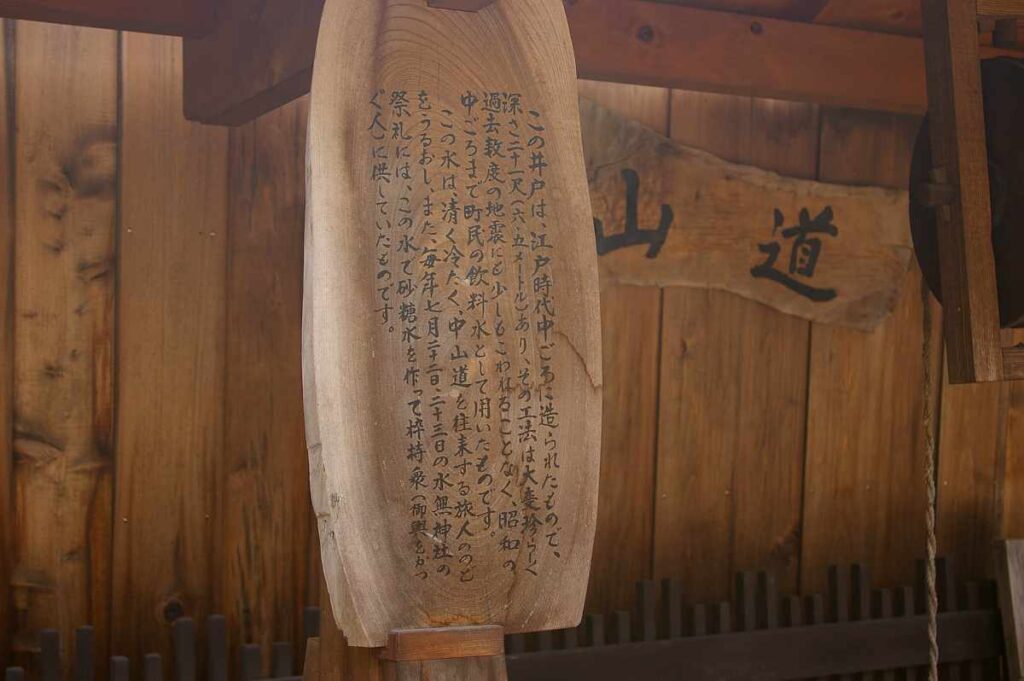 この井戸は、江戸時代中ごろに造られたもので、
深さ二十一尺(六.五メートル)あり、その工法は大変珍らしく
過去数度の地震にも少しもこわれることなく、昭和の
中ごろまで町民の飲料水として用いたものです。
この水は、清く冷たく、中山道を往来する旅人ののど
をうるおし、また、毎年七月二十二日、二十三日の水無神社の
祭礼には、この水で砂糖水を作って枠持衆(御輿をかつ
ぐ人)に供していたものです。
山道